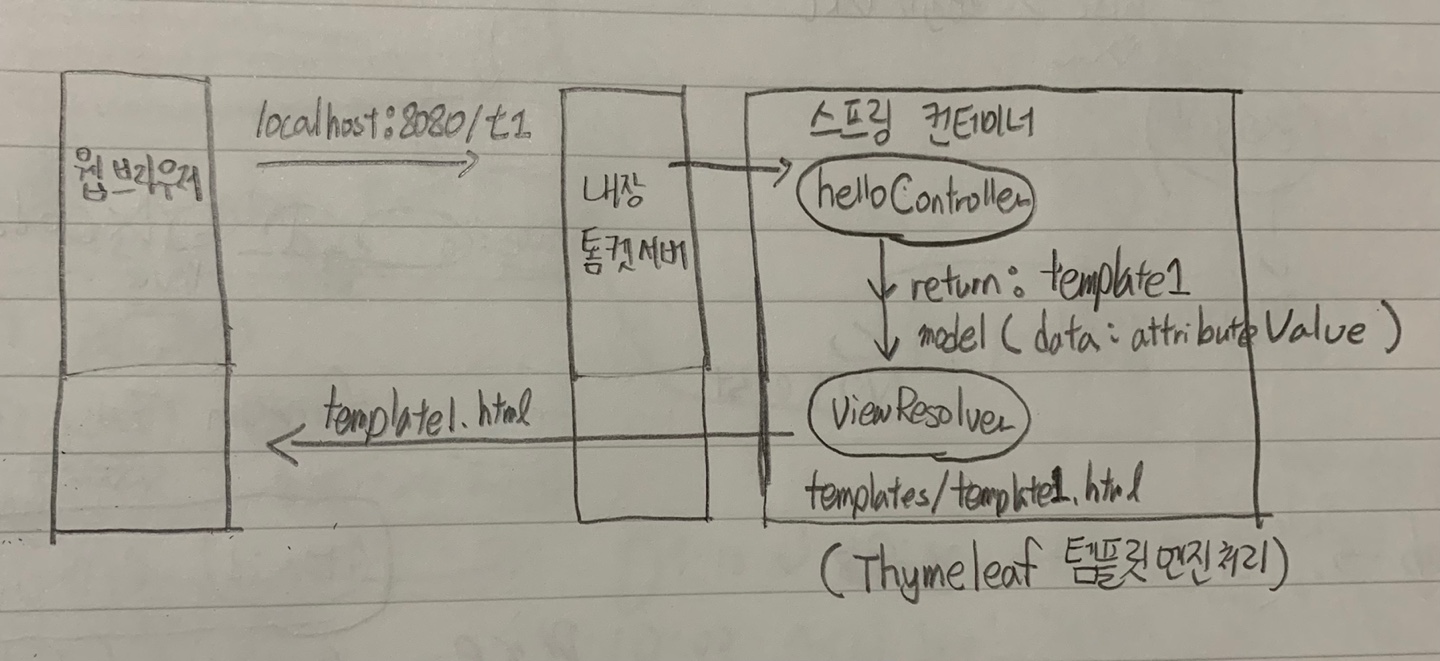 웹브라우저
localhost:8080/t1
내장
톰켓서버
스프링 컨테이너
helloController
return: template1
model (data: attributeValue)
viewResolver
template1.html
templates/template1.html
(Thymeleaf 템플릿엔진처리)